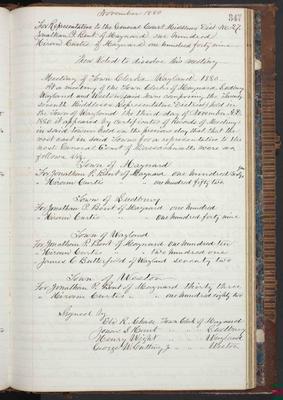 November 1880
347
For Representative to the General Court Middlesex Dist No. 27.
Jonathan P. Bent of Maynard one hundred
Hiram Curtis of Maynard one hundred forty nine
Then Voted to dissolve this meeting
Meeting of Town Clerks Wayland 1880.
At a meeting of the Town Clerks of Maynard, Sudbury
Wayland and Weston towns comprising the Twenty
seventh Middlesex Representative District, held in
the Town of Wayland the third day of November A.D.
1880 it appeared by certificates of Records of Meetings
in said towns held on the previous day that that the
vote cast in said Towns for a representative to the
next General Court of Massachusetts were as
follows viz.
Town of Maynard
For Jonathan P. Bent of Maynard one hundred
" Hiram Curtis " " one hundred fifty two
Town of Sudbury
For Jonathan P. Bent of Maynard one hundred
" Hiram Curtis " " one hundred forty nine
Town of Wayland
For Jonathan P. Bent of Maynard one hundred ten
" Hiram Curtis " " one hundred one
James C. Butterfield of Wayland seventy two
Town of Weston
For Jonathan P. Bent of Maynard thirty three
" Hiram Curtis " " one hundred eighty two
Signed by
R. Chase Town Clerk of Maynard
Jonas S. Hunt " " Sudbury
Henry Wight " " Wayland
George W. Cutting Jr " " Weston